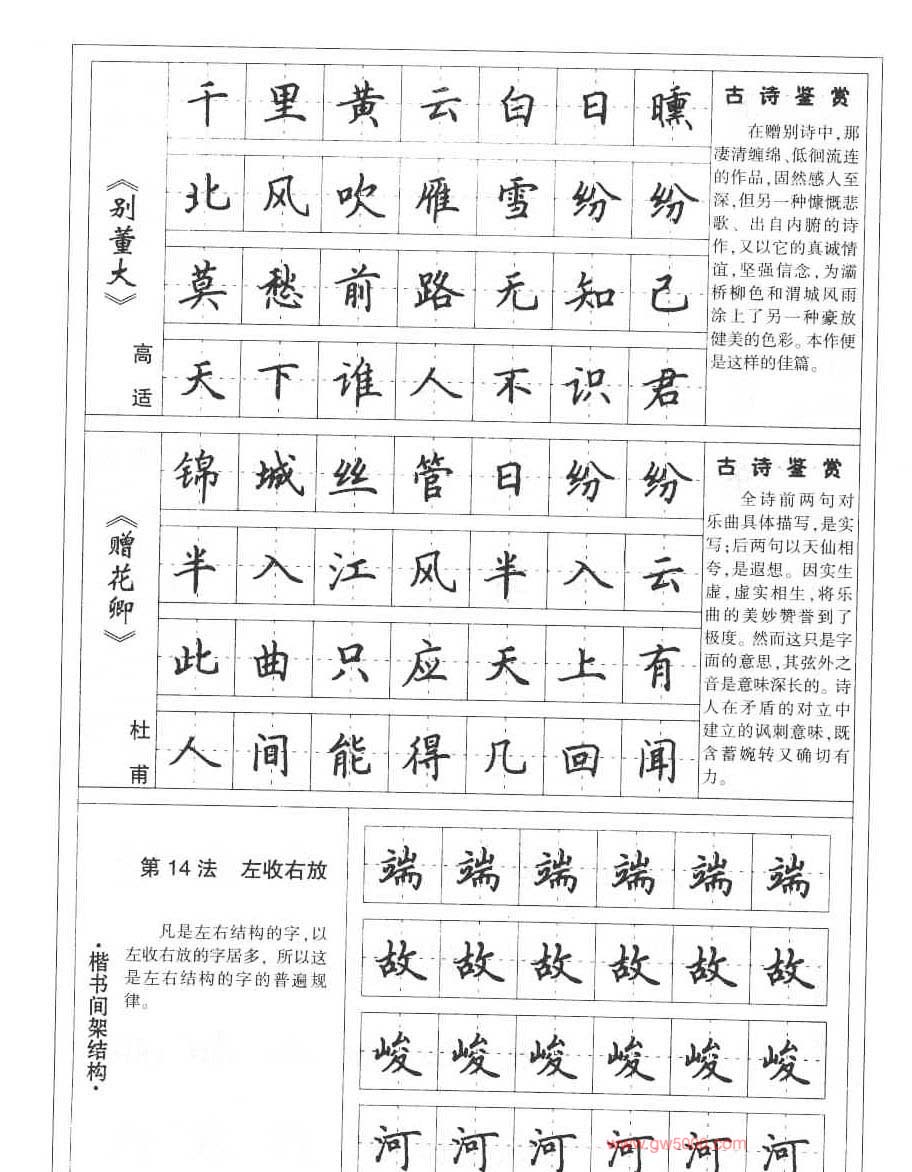 《别董大》
高适
千里黄云白日曛
北风吹雁雪纷纷
莫愁前路无知己
天下谁人不识君
古诗鉴赏
在赠别诗中,那
凄清缠绵、低徊流连
的作品,固然感人至
深,但另一种慷慨悲
歌、出自内腑的诗
作,又以它的真诚情
谊,坚强信念,为灞
桥柳色和渭城风雨
涂上了另一种豪放
健美的色彩。本作便
是这样的佳篇。
《赠花卿》
杜甫
锦城丝管日纷纷
半入江风半入云
此曲只应天上有
人间能得几回闻
古诗鉴赏
全诗前两句对
乐曲具体描写,是实
写;后两句以天仙相
夸,是遐想。因实生
虚,虚实相生,将乐
曲的美妙赞誉到了
极度。然而这只是字
面的意思,其弦外之
音是意味深长的。诗
人在矛盾的对立中
建立的讽刺意味,既
含蓄婉转又确切有
力。
·楷书间架结构·
第14法 左收右放
凡是左右结构的字,以
左收右放的字居多,所以这
是左右结构的字的普遍规
律。
端端端端端端
故故故故故故
峻峻峻峻峻峻
河河河河河河
www.gw5000.com